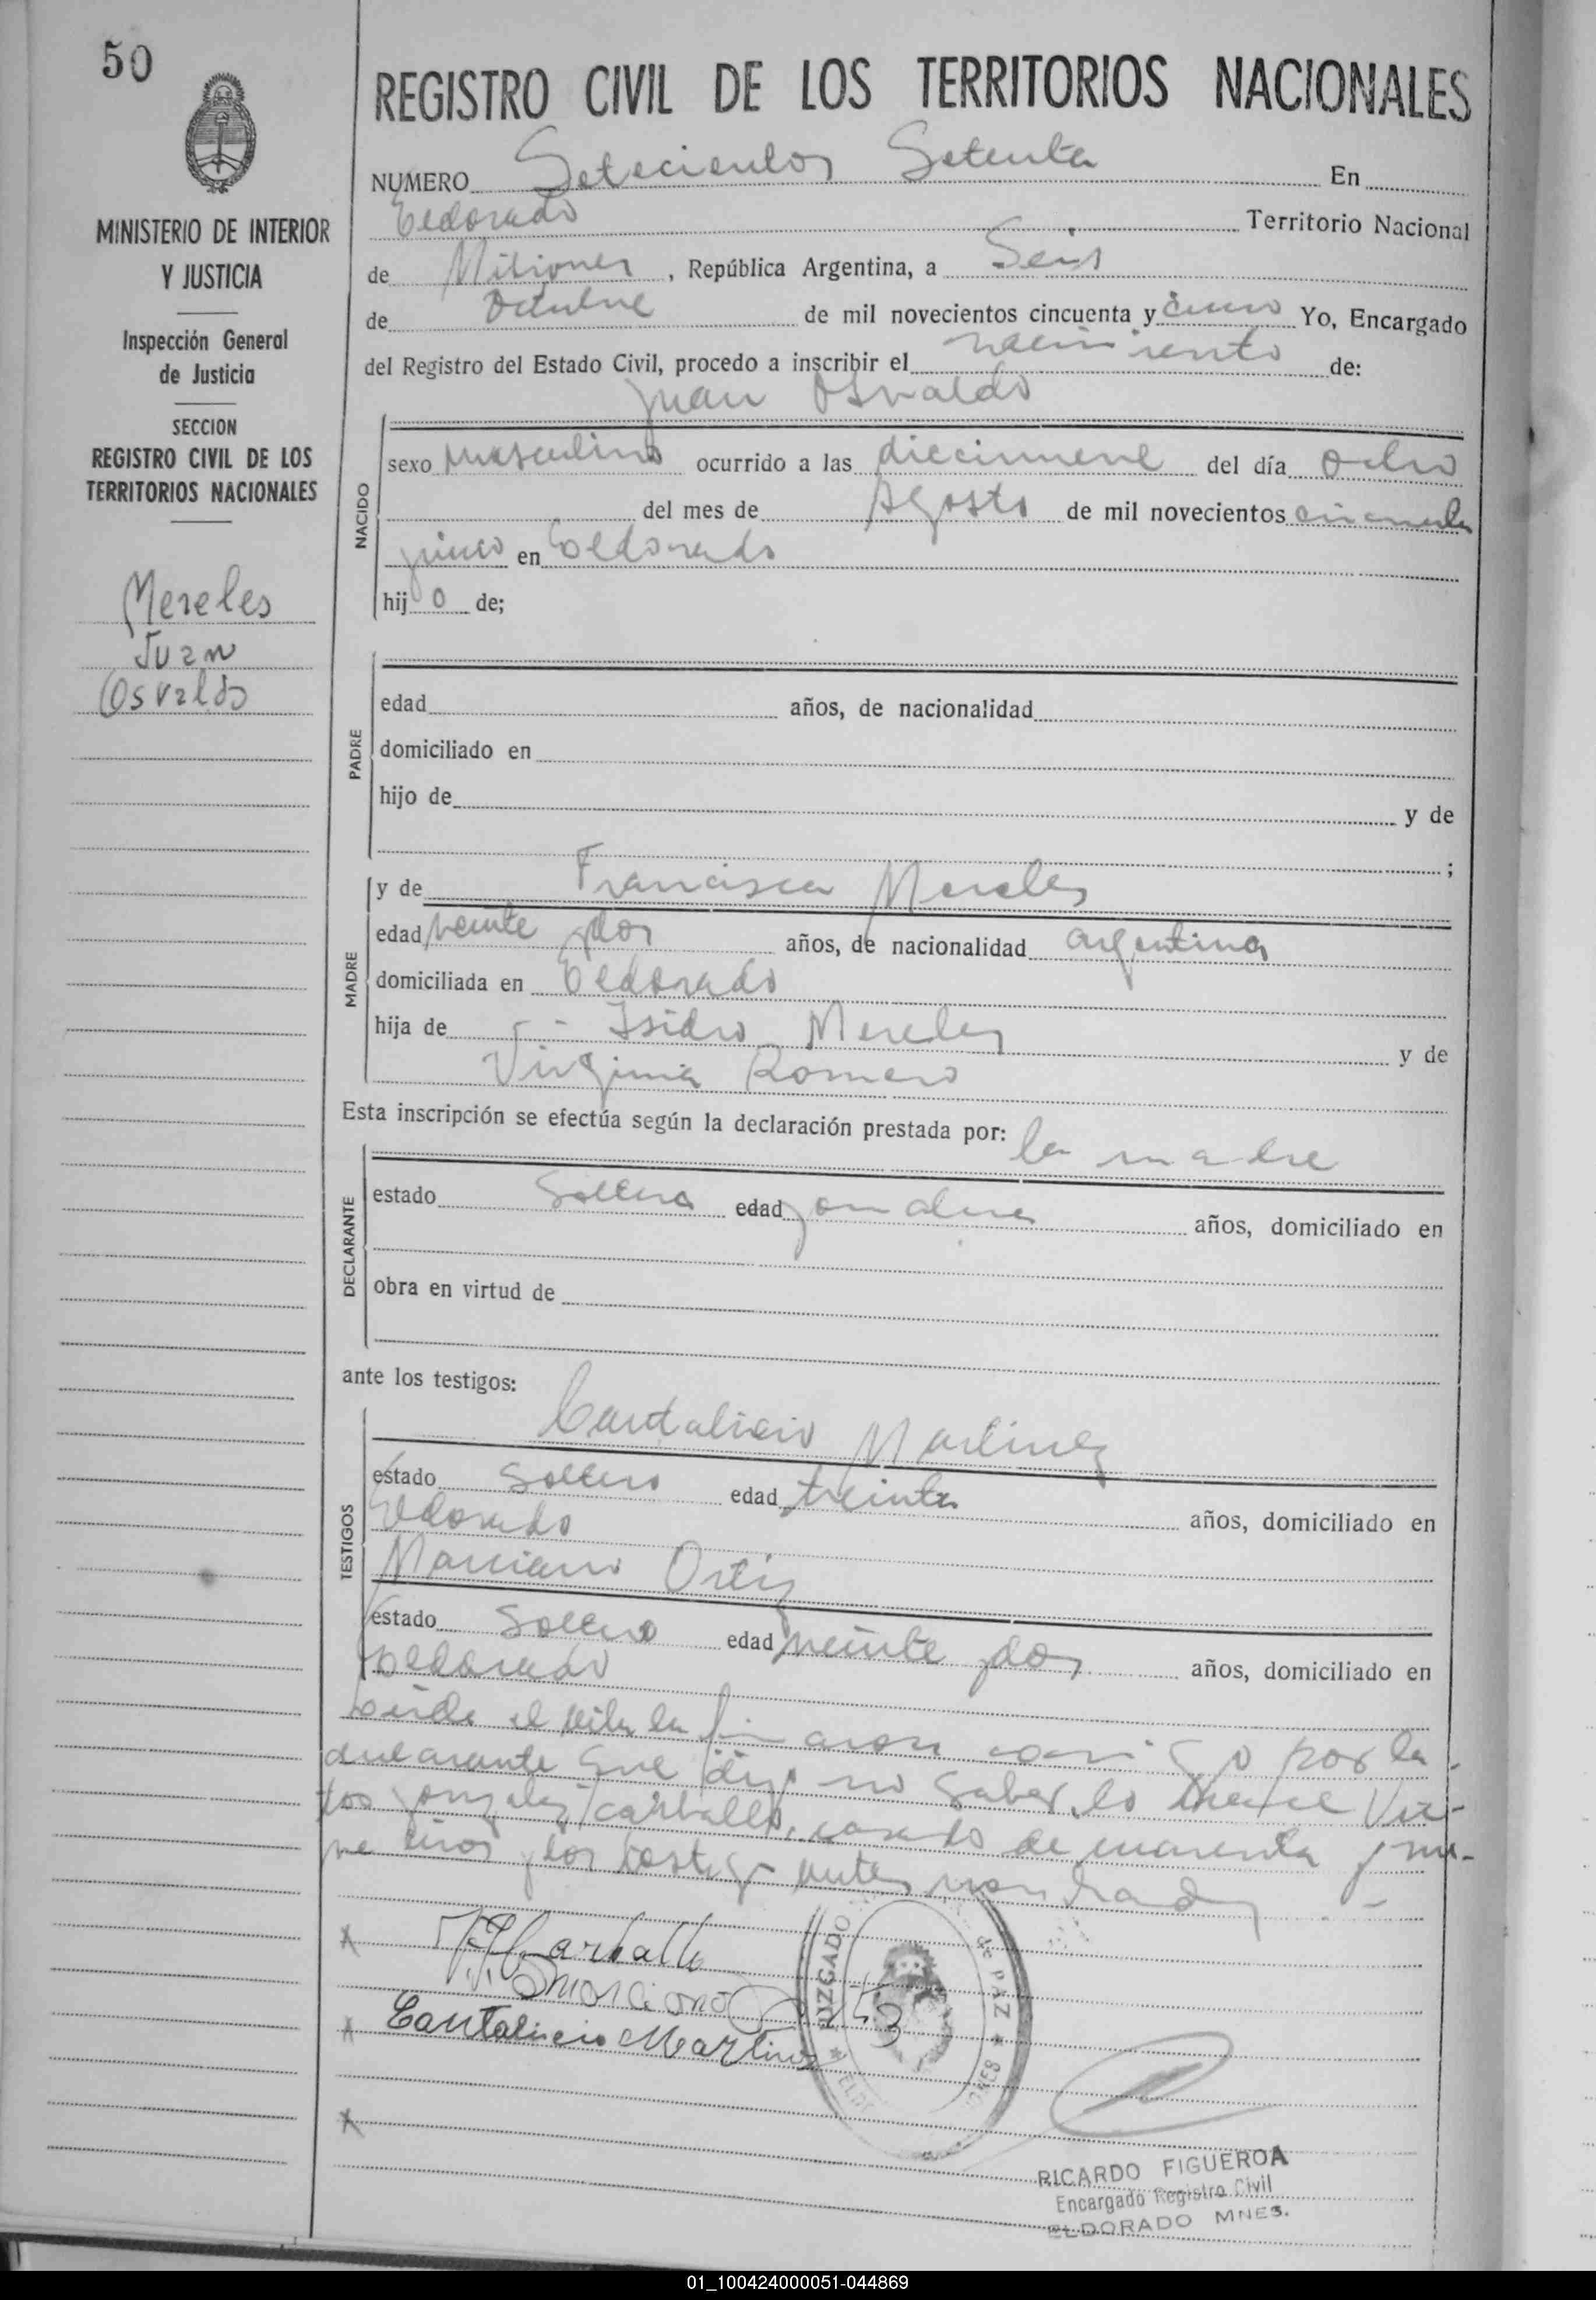 50
MINISTERIO DE INTERIOR
Y JUSTICIA
Inspección General
de Justicia
SECCION
REGISTRO CIVIL DE LOS
TERRITORIOS NACIONALES
Mereles
Juan
Osvaldo
REGISTRO CIVIL DE LOS TERRITORIOS NACIONALES
NUMERO Setecientos Setenta En
Eldorado Territorio Nacional
de Misiones, República Argentina, a Seis
de Octubre de mil novecientos cincuenta y cinco Yo, Encargado
del Registro del Estado Civil, procedo a inscribir el nacimiento de:
Juan Osvaldo
NACIDO
sexo masculino ocurrido a las diecinueve del día ocho
del mes de Agosto de mil novecientos cincuenta
y cinco en Eldorado
hijo de;
PADRE
edad años, de nacionalidad
domiciliado en
hijo de y de
;
MADRE
y de Francisca Mereles
edad veinte y dos años, de nacionalidad argentina
domiciliada en Eldorado
hija de Isidro Mereles y de
Virginia Romero
Esta inscripción se efectúa según la declaración prestada por: la madre
DECLARANTE
estado soltera edad años, domiciliado en
obra en virtud de
ante los testigos:
TESTIGOS
Cantalicio Martinez
estado soltero edad treinta años, domiciliado en
Eldorado
Marciano Ortiz
estado soltero edad veinte y dos años, domiciliado en
Eldorado
el acta la firmaron conmigo por la
declarante que dijo no saber lo hace
González Carballo, casado de cuarenta y nue-
ve años y los testigos antes nombrados
X Carballo
Marciano Ortiz
X Cantalicio Martinez
X
JUZGADO DE PAZ
RICARDO FIGUEROA
Encargado Registro Civil
ELDORADO MNES.
01_100424000051-044869